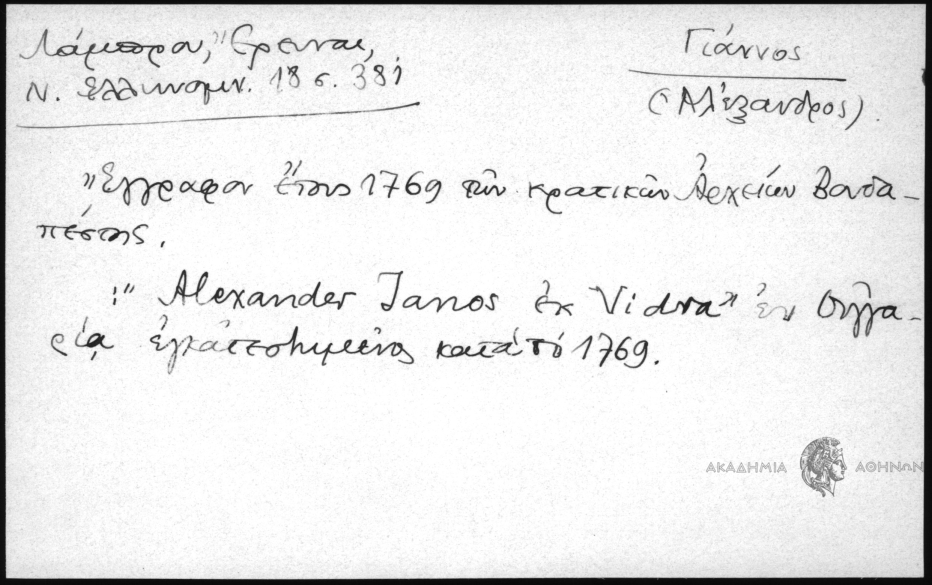 Λάμπρου, "Έρευναι,
Ν. Ελληνομν. 18 σ. 381
Γιάννος
(Ἀλέξανδρος).
"Έγγραφον ἔτους 1769 τῶν κρατικῶν Ἀρχείων Βουδα-
πέστης.
:" Alexander Janos ἐκ Vidra" ἐν Οὑγγα-
ρίᾳ ἐγκατεστημένος κατὰ τὸ 1769.
ΑΚΑΔΗΜΙΑ ΑΘΗΝΩΝ